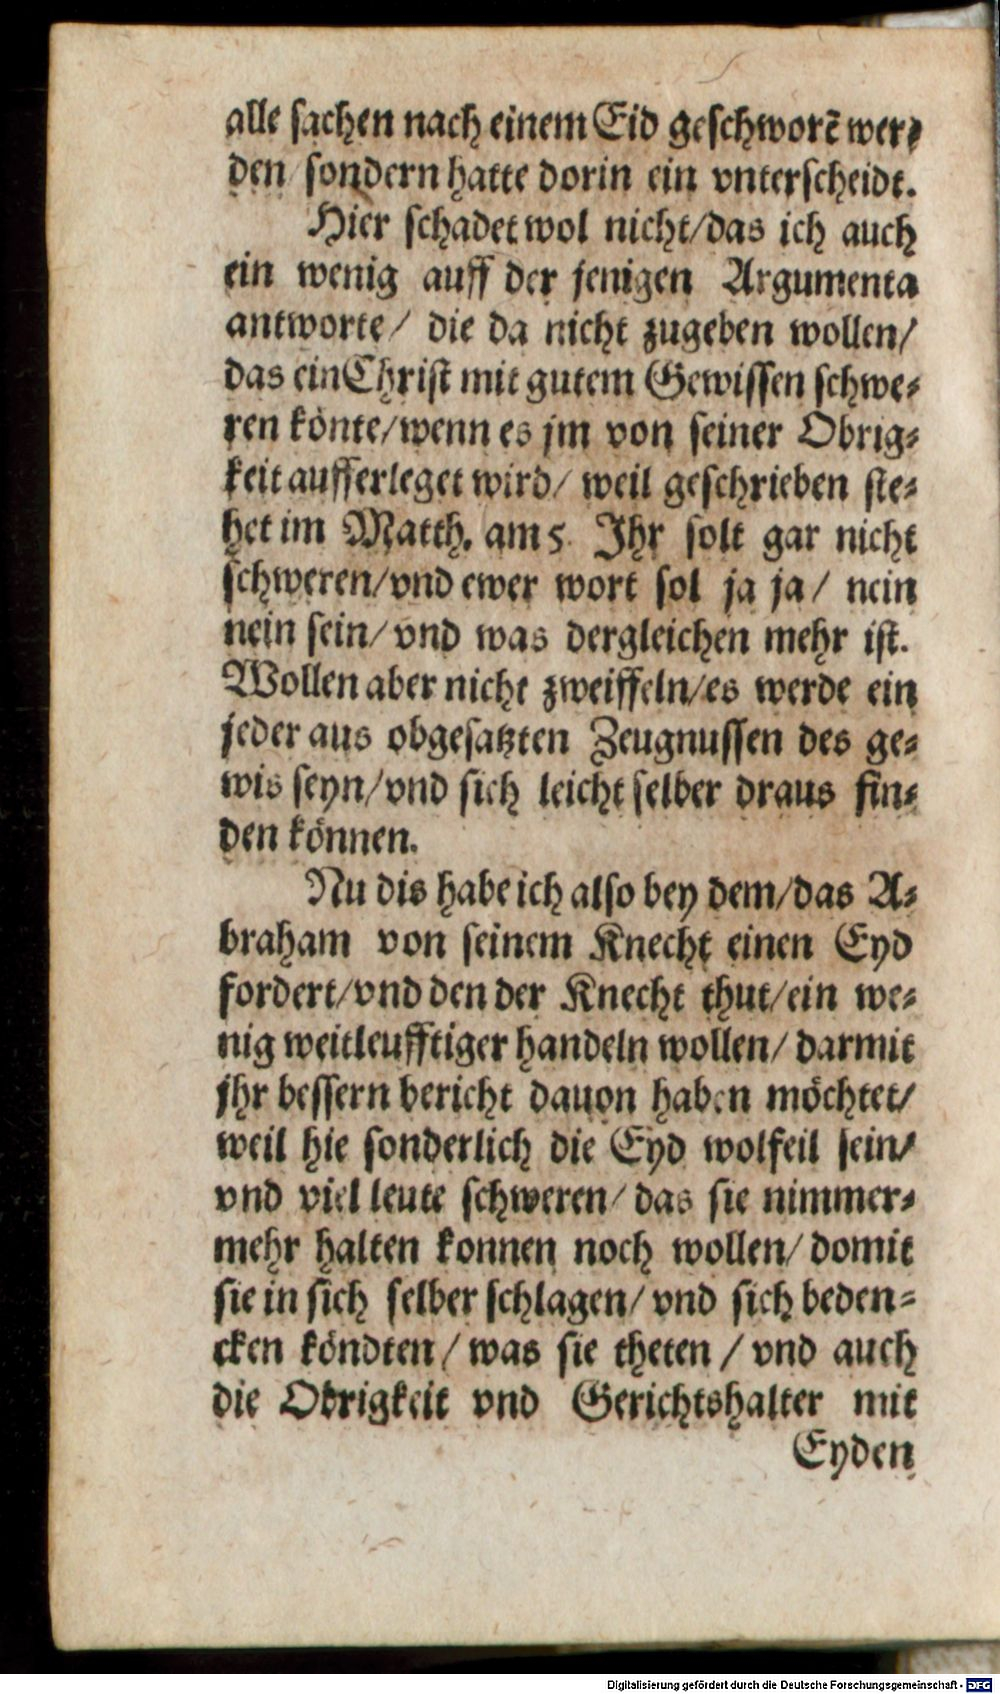 alle sachen nach einem Eid geschworẽ wer⸗
den sondern hatte dorin ein vnterscheidt.
Hier schadet wol nicht/das ich auch
ein wenig auff der jenigen Argumenta
antworte/ die da nicht zugeben wollen/
das ein Christ mit gutem Gewissen schwe⸗
ren könte/wenn es jm von seiner Obrig⸗
keit aufferleget wird/ weil geschrieben ste⸗
het im Matth. am 5. Jhr solt gar nicht
schweren/vnd ewer wort sol ja ja/ nein
nein sein/ vnd was dergleichen mehr ist.
Wollen aber nicht zweiffeln/es werde ein
jeder aus obgesatzten Zeugnussen des ge⸗
wis seyn/vnd sich leicht selber draus fin⸗
den können.
Nu dis habe ich also bey dem/das A⸗
braham von seinem Knecht einen Eyd
fordert/vnd den der Knecht thut/ein we⸗
nig weitleufftiger handeln wollen/ darmit
jhr bessern bericht dauon haben möchtet/
weil hie sonderlich die Eyd wolfeil sein/
vnd viel leute schweren/ das sie nimmer⸗
mehr halten konnen noch wollen/ domit
sie in sich selber schlagen/ vnd sich beden⸗
cken köndten/ was sie theten / vnd auch
die Obrigkeit vnd Gerichtshalter mit
Eyden
Digitalisierung gefördert durch die Deutsche Forschungsgemeinschaft - DFG